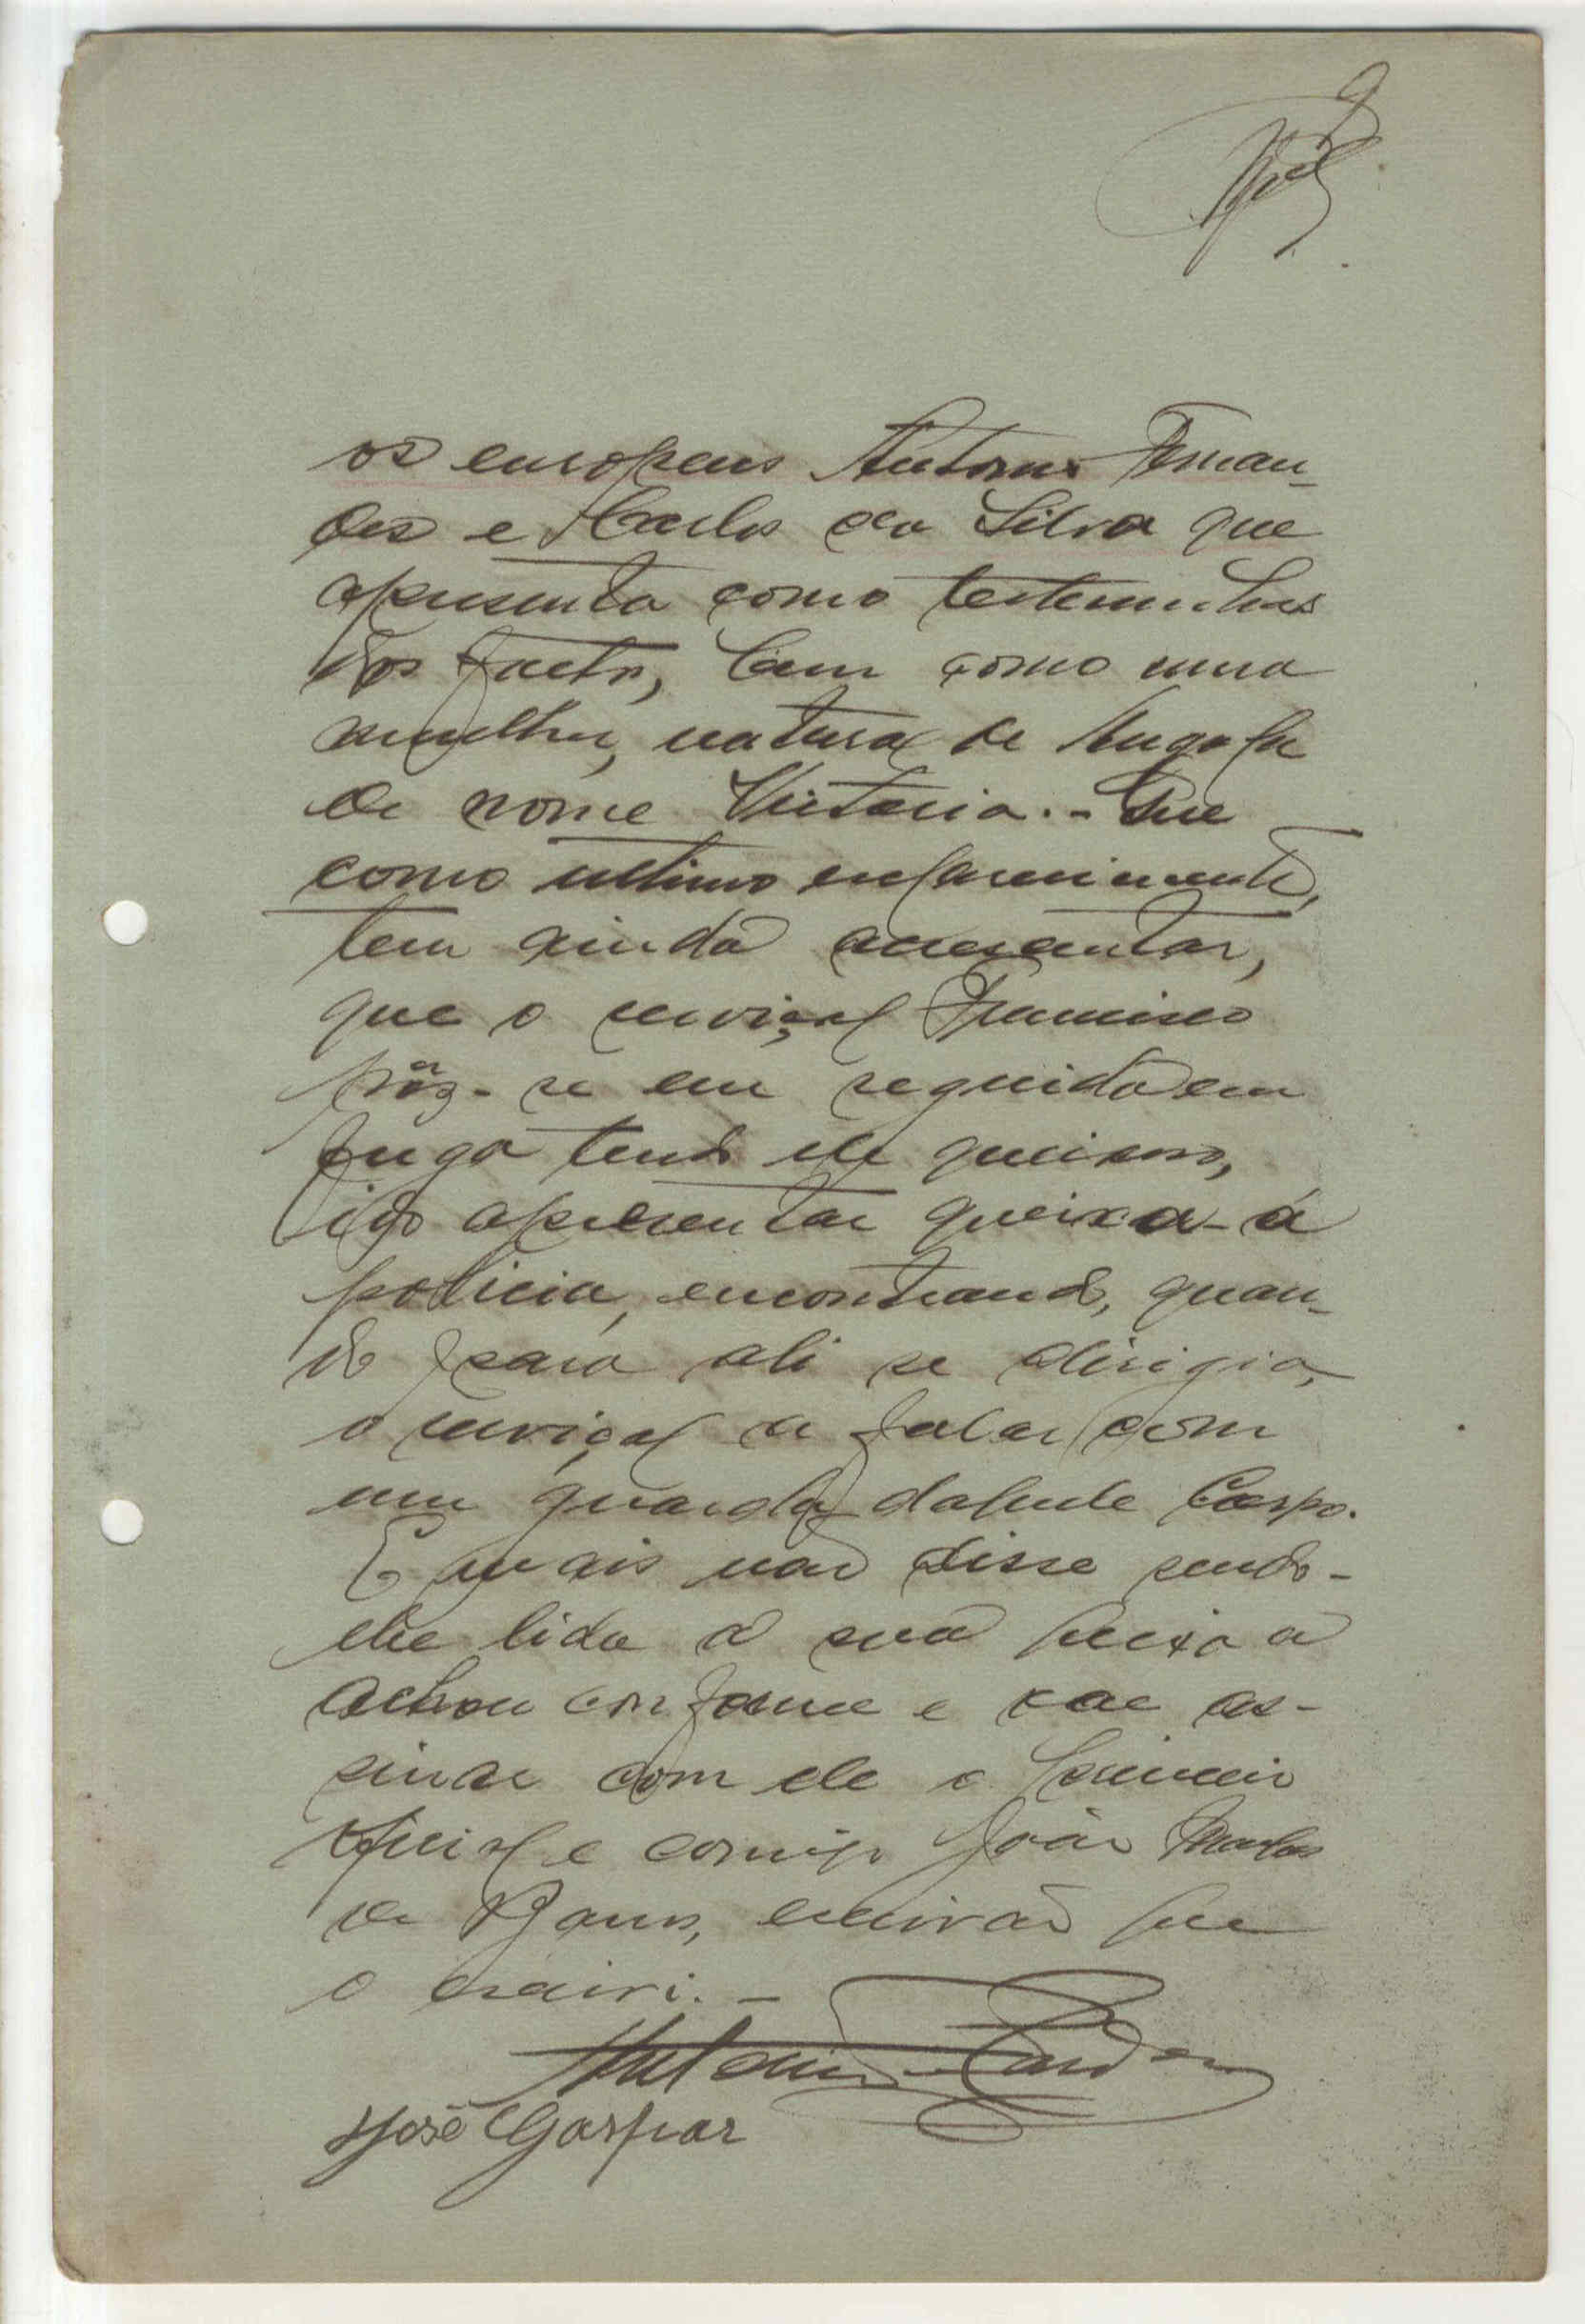 os europeus Antonio Fernan-
des e Carlos da Silva que
apresenta como testemunhas
dos factos, bem como uma
mulher, natural de Angola
de nome Victoria. - Que
como ultimo esclarecimento,
tem ainda acrescentar,
que o serviçal Francisco
pôz-se em seguida em
fuga tendo ele queixoso,
ido apresentar queixa á
policia, encontrando, quan-
do para ali se dirigia,
o serviçal a falar com
um guarda daquele Corpo.
E mais não disse sendo-
lhe lida a sua queixa a
achou conforme e vae as-
sinar com ele o primeiro
oficial e comigo João
de escrivão que
o escrevi. -
José Gaspar